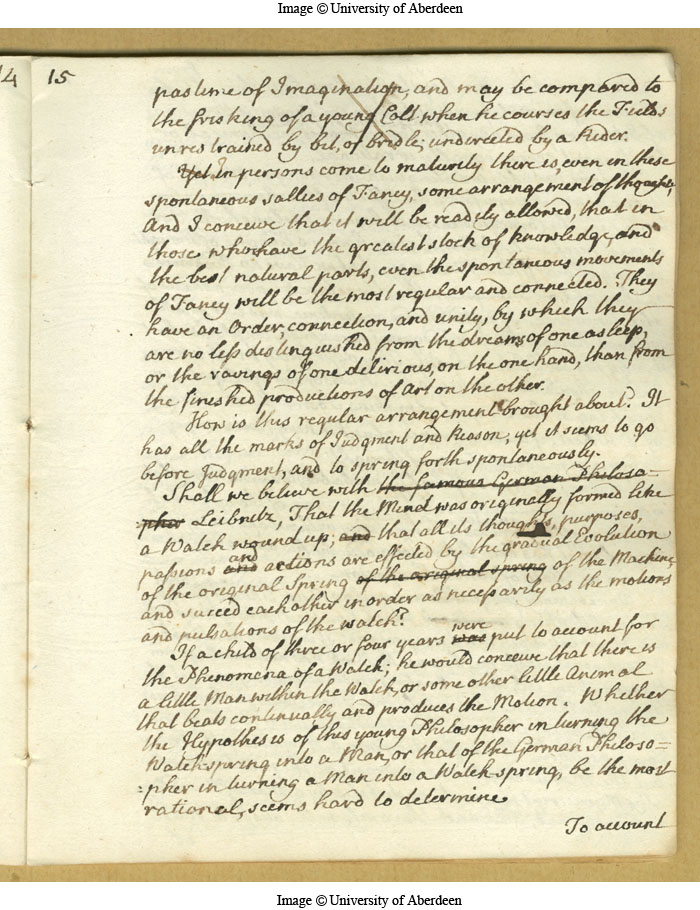 Image © University of Aberdeen
14
15
pastime of Imagination, and may be compared to
the frisking of a young Colt when he courses the Fields
unrestrained by bit, or bridle; undirected by a Rider.
Yet In persons come to maturity there is, even in these
spontaneous sallies of Fancy, some arrangement of thought,
And I conceive that it will be readily allowed, that in
those who have the greatest stock of knowledge, and
the best natural parts, even the spontaneous movements
of Fancy will be the most regular and connected. They
have an Order, connection, and unity, by which they
are no less distinguished from the dreams of one asleep,
or the ravings of one delirious, on the one hand, than from
the finished productions of Art on the other.
How is this regular arrangement brought about? It
has all the marks of Judgment and Reason, yet it seems to go
before Judgment, and to spring forth spontaneously.
Shall we believe with the famous German Philoso=
=pher Leibnitz, That the Mind was originally formed like
a Watch wound up; and that all its thoughts, purposes,
and
passions and actions are effected by the gradual Evolution
of the original Spring of the original spring of the Machine,
and succeed each other in order as necessarily as the motions
and pulsations of the watch?
were
If a child of three or four years was put to account for
the Phenomena of a Watch; he would conceive that there is
a little Man within the Watch, or some other little Animal
that beats continually and produces the Motion. Whether
the Hypothesis of this young Philosopher in turning the
Watchspring into a Man, or that of the German Philoso=
=pher in turning a Man into a Watch spring, be the most
rational, seems hard to determine
To account
Image © University of Aberdeen